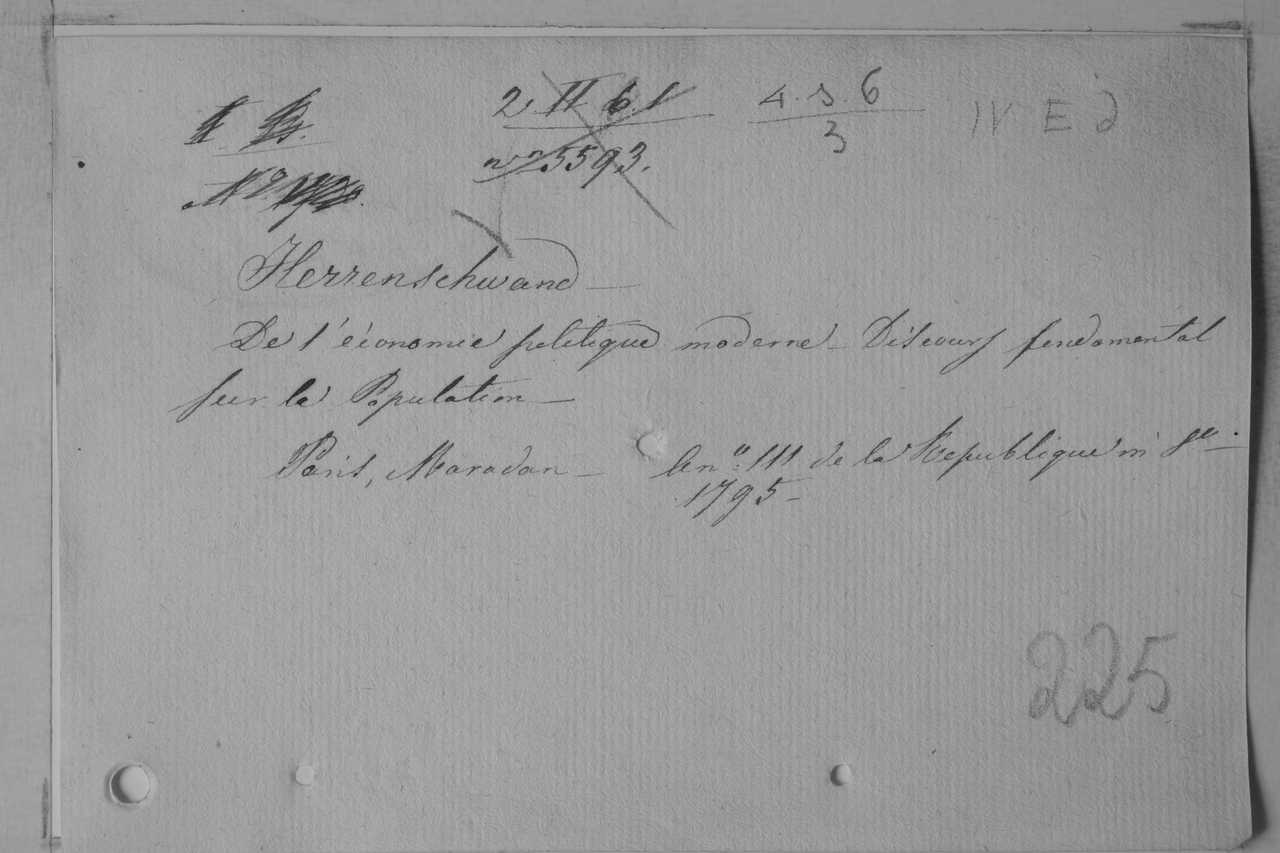 2. II 6. 1 4. s. 6 IV E 2
n.º 5593. 3
Nº
Herrenschwand —
De l'économie politique moderne — Discours fondamental
sur la Population —
Paris, Maradan — An.º III de la Republique in 8º. —
1795 —
225